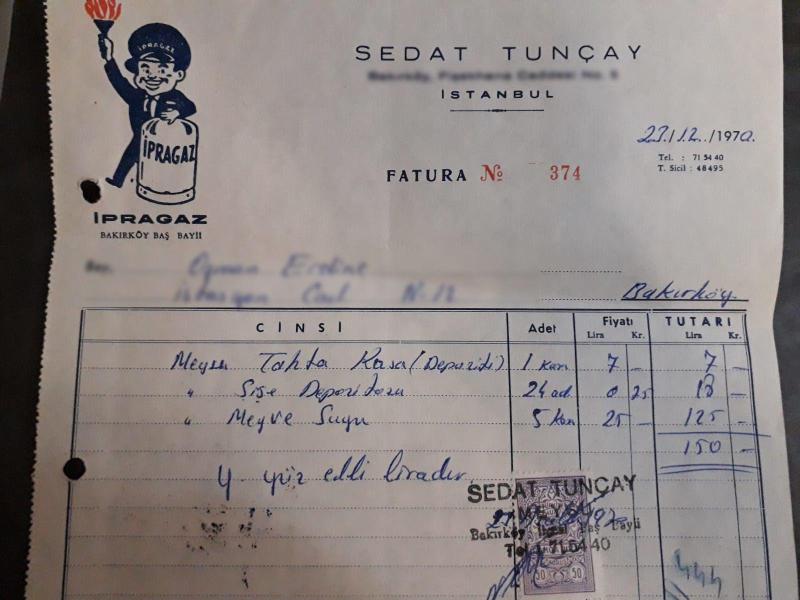 İPRAGAZ
İPRAGAZ
İPRAGAZ
BAKIRKÖY BAŞ BAYİİ
SEDAT TUNÇAY
İSTANBUL
23/12../1970.
Tel. : 71 54 40
T. Sicil : 48495
FATURA № 374
Bakırköy
CİNSİ Adet Fiyatı Lira Kr. TUTARI Lira Kr.
Meysu Tahta Kasa (Depoziti) 1 7 - 7 -
" Şişe Depozitosu 24 ad 0 25 18 -
" Meyve Suyu 5 25 - 125 -
150 -
Y. yüz elli liradır
SEDAT TUNÇAY
MEYSU
Bakırköy Baş Bayii
Tel : 71 54 40
50 50
444